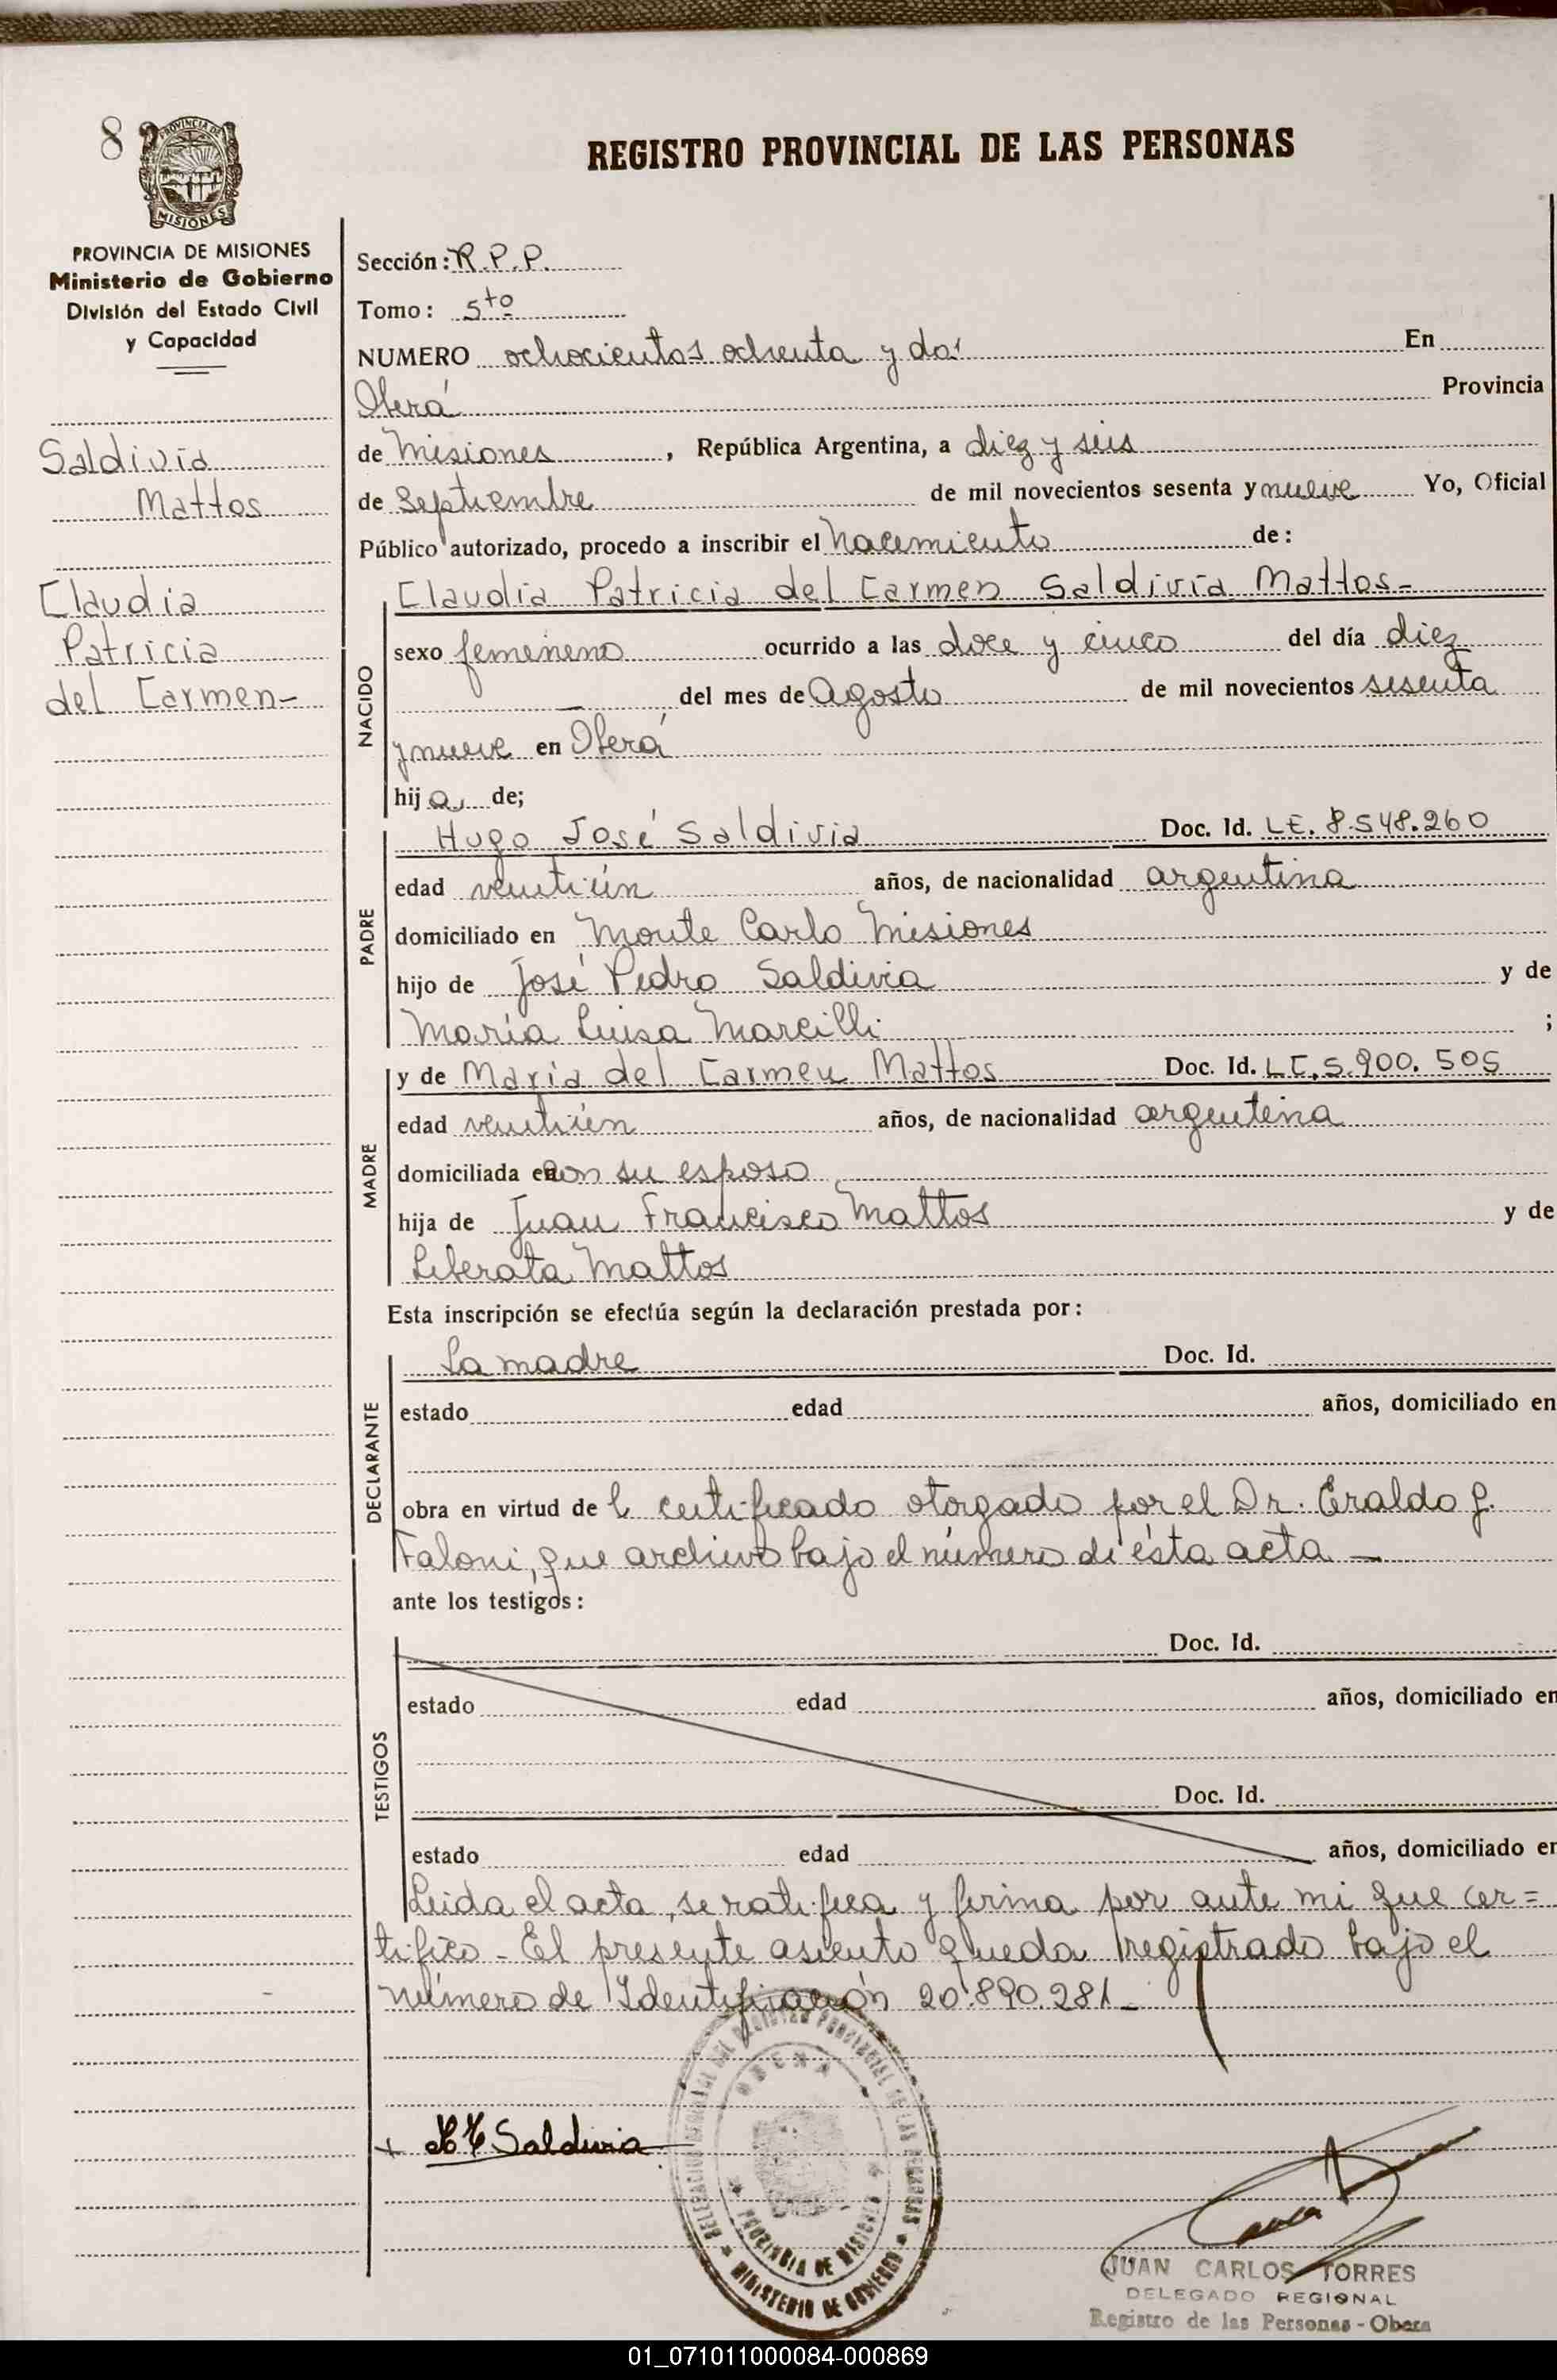 8
PROVINCIA DE
MISIONES
REGISTRO PROVINCIAL DE LAS PERSONAS
PROVINCIA DE MISIONES
Ministerio de Gobierno
División del Estado Civil
y Capacidad
Saldivia
Mattos
Claudia
Patricia
del Carmen-
Sección: R.P.P.
Tomo: 5to
NUMERO ochocientos ochenta y dos En
Oberá Provincia
de Misiones, República Argentina, a diez y seis
de Septiembre de mil novecientos sesenta y nueve Yo, Oficial
Público autorizado, procedo a inscribir el Nacimiento de:
NACIDO
Claudia Patricia del Carmen Saldivia Mattos-
sexo femenino ocurrido a las doce y cinco del día diez
del mes de Agosto de mil novecientos sesenta
y nueve en Oberá
hija de;
PADRE
Hugo José Saldivia Doc. Id. LE. 8.548.260
edad veintiún años, de nacionalidad argentina
domiciliado en Monte Carlo Misiones
hijo de José Pedro Saldivia y de
María Luisa Marcilli ;
MADRE
y de Maria del Carmen Mattos Doc. Id. LC. 5.900.505
edad veintiún años, de nacionalidad argentina
domiciliada en con su esposo
hija de Juan Francisco Mattos y de
Liberata Mattos
Esta inscripción se efectúa según la declaración prestada por:
DECLARANTE
La madre Doc. Id.
estado edad años, domiciliado en
obra en virtud de l certificado otorgado por el Dr. Eraldo J.
Faloni, que archivo bajo el número de ésta acta —
ante los testigos:
TESTIGOS
Doc. Id.
estado edad años, domiciliado en
Doc. Id.
estado edad años, domiciliado en
Leida el acta, se ratifica y firma por ante mi que cer=
tifico - El presente asiento queda registrado bajo el
número de Identificación 20.890.281-
+ Saldivia
OBERA
PROVINCIA DE MISIONES
MINISTERIO DE GOBIERNO
JUAN CARLOS TORRES
DELEGADO REGIONAL
Registro de las Personas - Obera
01_071011000084-000869